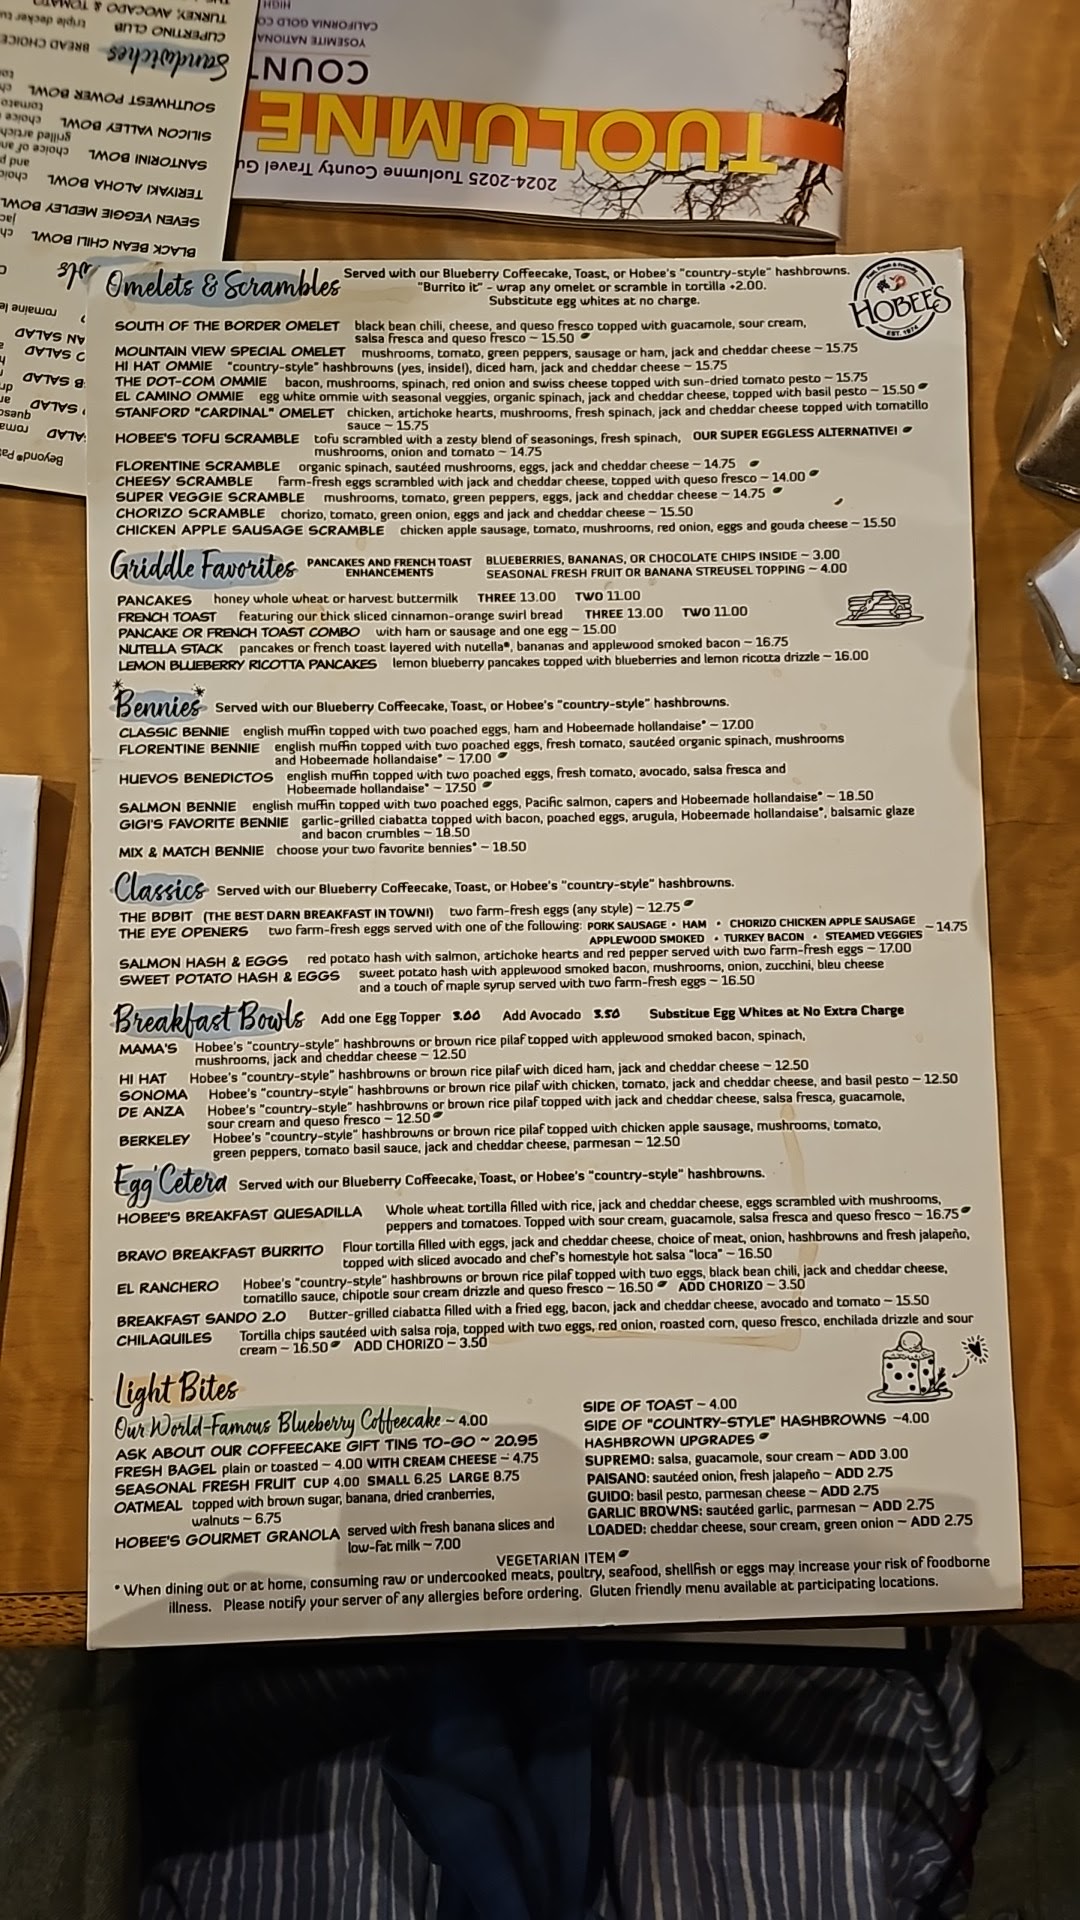 HIGH
CALIFORNIA GOLD CO
YOSEMITE NATIONA
COUNT
TUOLUMNE
2024-2025 Tuolumne County Travel Gu
TURKEY, AVOCADO & TOMATO
triple decker
CUPERTINO CLUB
Sandwiches BREAD CHOICE
SOUTHWEST POWER BOWL
tomato
SILICON VALLEY BOWL choice
grilled artich
SANTORINI BOWL choice of an
and
TERIYAKI ALOHA BOWL
SEVEN VEGGIE MEDLEY BOWL
BLACK BEAN CHILI BOWL
romaine le
AN SALAD
SALAD
B SALAD
SALAD
Beyond
Omelets & Scrambles Served with our Blueberry Coffeecake, Toast, or Hobee's "country-style" hashbrowns.
"Burrito it" - wrap any omelet or scramble in tortilla +2.00.
Substitute egg whites at no charge.
HOBEE'S
EST. 1974
SOUTH OF THE BORDER OMELET black bean chili, cheese, and queso fresco topped with guacamole, sour cream,
salsa fresca and queso fresco ~ 15.50
MOUNTAIN VIEW SPECIAL OMELET mushrooms, tomato, green peppers, sausage or ham, jack and cheddar cheese ~ 15.75
HI HAT OMMIE "country-style" hashbrowns (yes, inside!), diced ham, jack and cheddar cheese ~ 15.75
THE DOT-COM OMMIE bacon, mushrooms, spinach, red onion and swiss cheese topped with sun-dried tomato pesto ~ 15.75
EL CAMINO OMMIE egg white ommie with seasonal veggies, organic spinach, jack and cheddar cheese, topped with basil pesto ~ 15.50
STANFORD "CARDINAL" OMELET chicken, artichoke hearts, mushrooms, fresh spinach, jack and cheddar cheese topped with tomatillo
sauce ~ 15.75
HOBEE'S TOFU SCRAMBLE tofu scrambled with a zesty blend of seasonings, fresh spinach, OUR SUPER EGGLESS ALTERNATIVE!
mushrooms, onion and tomato ~ 14.75
FLORENTINE SCRAMBLE organic spinach, sautéed mushrooms, eggs, jack and cheddar cheese ~ 14.75
CHEESY SCRAMBLE farm-fresh eggs scrambled with jack and cheddar cheese, topped with queso fresco ~ 14.00
SUPER VEGGIE SCRAMBLE mushrooms, tomato, green peppers, eggs, jack and cheddar cheese ~ 14.75
CHORIZO SCRAMBLE chorizo, tomato, green onion, eggs and jack and cheddar cheese ~ 15.50
CHICKEN APPLE SAUSAGE SCRAMBLE chicken apple sausage, tomato, mushrooms, red onion, eggs and gouda cheese ~ 15.50
Griddle Favorites PANCAKES AND FRENCH TOAST BLUEBERRIES, BANANAS, OR CHOCOLATE CHIPS INSIDE ~ 3.00
ENHANCEMENTS SEASONAL FRESH FRUIT OR BANANA STREUSEL TOPPING ~ 4.00
PANCAKES honey whole wheat or harvest buttermilk THREE 13.00 TWO 11.00
FRENCH TOAST featuring our thick sliced cinnamon-orange swirl bread THREE 13.00 TWO 11.00
PANCAKE OR FRENCH TOAST COMBO with ham or sausage and one egg ~ 15.00
NUTELLA STACK pancakes or french toast layered with nutella®, bananas and applewood smoked bacon ~ 16.75
LEMON BLUEBERRY RICOTTA PANCAKES lemon blueberry pancakes topped with blueberries and lemon ricotta drizzle ~ 16.00
Bennies Served with our Blueberry Coffeecake, Toast, or Hobee's "country-style" hashbrowns.
CLASSIC BENNIE english muffin topped with two poached eggs, ham and Hobeemade hollandaise* ~ 17.00
FLORENTINE BENNIE english muffin topped with two poached eggs, fresh tomato, sautéed organic spinach, mushrooms
and Hobeemade hollandaise* ~ 17.00
HUEVOS BENEDICTOS english muffin topped with two poached eggs, fresh tomato, avocado, salsa fresca and
Hobeemade hollandaise* ~ 17.50
SALMON BENNIE english muffin topped with two poached eggs, Pacific salmon, capers and Hobeemade hollandaise* ~ 18.50
GIGI'S FAVORITE BENNIE garlic-grilled ciabatta topped with bacon, poached eggs, arugula, Hobeemade hollandaise*, balsamic glaze
and bacon crumbles ~ 18.50
MIX & MATCH BENNIE choose your two favorite bennies* ~ 18.50
Classics Served with our Blueberry Coffeecake, Toast, or Hobee's "country-style" hashbrowns.
THE BDBIT (THE BEST DARN BREAKFAST IN TOWN!) two farm-fresh eggs (any style) ~ 12.75
THE EYE OPENERS two farm-fresh eggs served with one of the following: PORK SAUSAGE • HAM • CHORIZO CHICKEN APPLE SAUSAGE ~ 14.75
APPLEWOOD SMOKED • TURKEY BACON • STEAMED VEGGIES
SALMON HASH & EGGS red potato hash with salmon, artichoke hearts and red pepper served with two farm-fresh eggs ~ 17.00
SWEET POTATO HASH & EGGS sweet potato hash with applewood smoked bacon, mushrooms, onion, zucchini, bleu cheese
and a touch of maple syrup served with two farm-fresh eggs ~ 16.50
Breakfast Bowls Add one Egg Topper 3.00 Add Avocado 3.50 Substitue Egg Whites at No Extra Charge
MAMA'S Hobee's "country-style" hashbrowns or brown rice pilaf topped with applewood smoked bacon, spinach,
mushrooms, jack and cheddar cheese ~ 12.50
HI HAT Hobee's "country-style" hashbrowns or brown rice pilaf with diced ham, jack and cheddar cheese ~ 12.50
SONOMA Hobee's "country-style" hashbrowns or brown rice pilaf with chicken, tomato, jack and cheddar cheese, and basil pesto ~ 12.50
DE ANZA Hobee's "country-style" hashbrowns or brown rice pilaf topped with jack and cheddar cheese, salsa fresca, guacamole,
sour cream and queso fresco ~ 12.50
BERKELEY Hobee's "country-style" hashbrowns or brown rice pilaf topped with chicken apple sausage, mushrooms, tomato,
green peppers, tomato basil sauce, jack and cheddar cheese, parmesan ~ 12.50
Egg'Cetera Served with our Blueberry Coffeecake, Toast, or Hobee's "country-style" hashbrowns.
HOBEE'S BREAKFAST QUESADILLA Whole wheat tortilla filled with rice, jack and cheddar cheese, eggs scrambled with mushrooms,
peppers and tomatoes. Topped with sour cream, guacamole, salsa fresca and queso fresco ~ 16.75
BRAVO BREAKFAST BURRITO Flour tortilla filled with eggs, jack and cheddar cheese, choice of meat, onion, hashbrowns and fresh jalapeño,
topped with sliced avocado and chef's homestyle hot salsa "loca" ~ 16.50
EL RANCHERO Hobee's "country-style" hashbrowns or brown rice pilaf topped with two eggs, black bean chili, jack and cheddar cheese,
tomatillo sauce, chipotle sour cream drizzle and queso fresco ~ 16.50 ADD CHORIZO ~ 3.50
BREAKFAST SANDO 2.0 Butter-grilled ciabatta filled with a fried egg, bacon, jack and cheddar cheese, avocado and tomato ~ 15.50
CHILAQUILES Tortilla chips sautéed with salsa roja, topped with two eggs, red onion, roasted corn, queso fresco, enchilada drizzle and sour
cream ~ 16.50 ADD CHORIZO ~ 3.50
Light Bites
Our World-Famous Blueberry Coffeecake ~ 4.00
ASK ABOUT OUR COFFEECAKE GIFT TINS TO-GO ~ 20.95
FRESH BAGEL plain or toasted ~ 4.00 WITH CREAM CHEESE ~ 4.75
SEASONAL FRESH FRUIT CUP 4.00 SMALL 6.25 LARGE 8.75
OATMEAL topped with brown sugar, banana, dried cranberries,
walnuts ~ 6.75
HOBEE'S GOURMET GRANOLA served with fresh banana slices and
low-fat milk ~ 7.00
SIDE OF TOAST ~ 4.00
SIDE OF "COUNTRY-STYLE" HASHBROWNS ~4.00
HASHBROWN UPGRADES
SUPREMO: salsa, guacamole, sour cream ~ ADD 3.00
PAISANO: sautéed onion, fresh jalapeño ~ ADD 2.75
GUIDO: basil pesto, parmesan cheese ~ ADD 2.75
GARLIC BROWNS: sautéed garlic, parmesan ~ ADD 2.75
LOADED: cheddar cheese, sour cream, green onion ~ ADD 2.75
VEGETARIAN ITEM
* When dining out or at home, consuming raw or undercooked meats, poultry, seafood, shellfish or eggs may increase your risk of foodborne
illness. Please notify your server of any allergies before ordering. Gluten friendly menu available at participating locations.